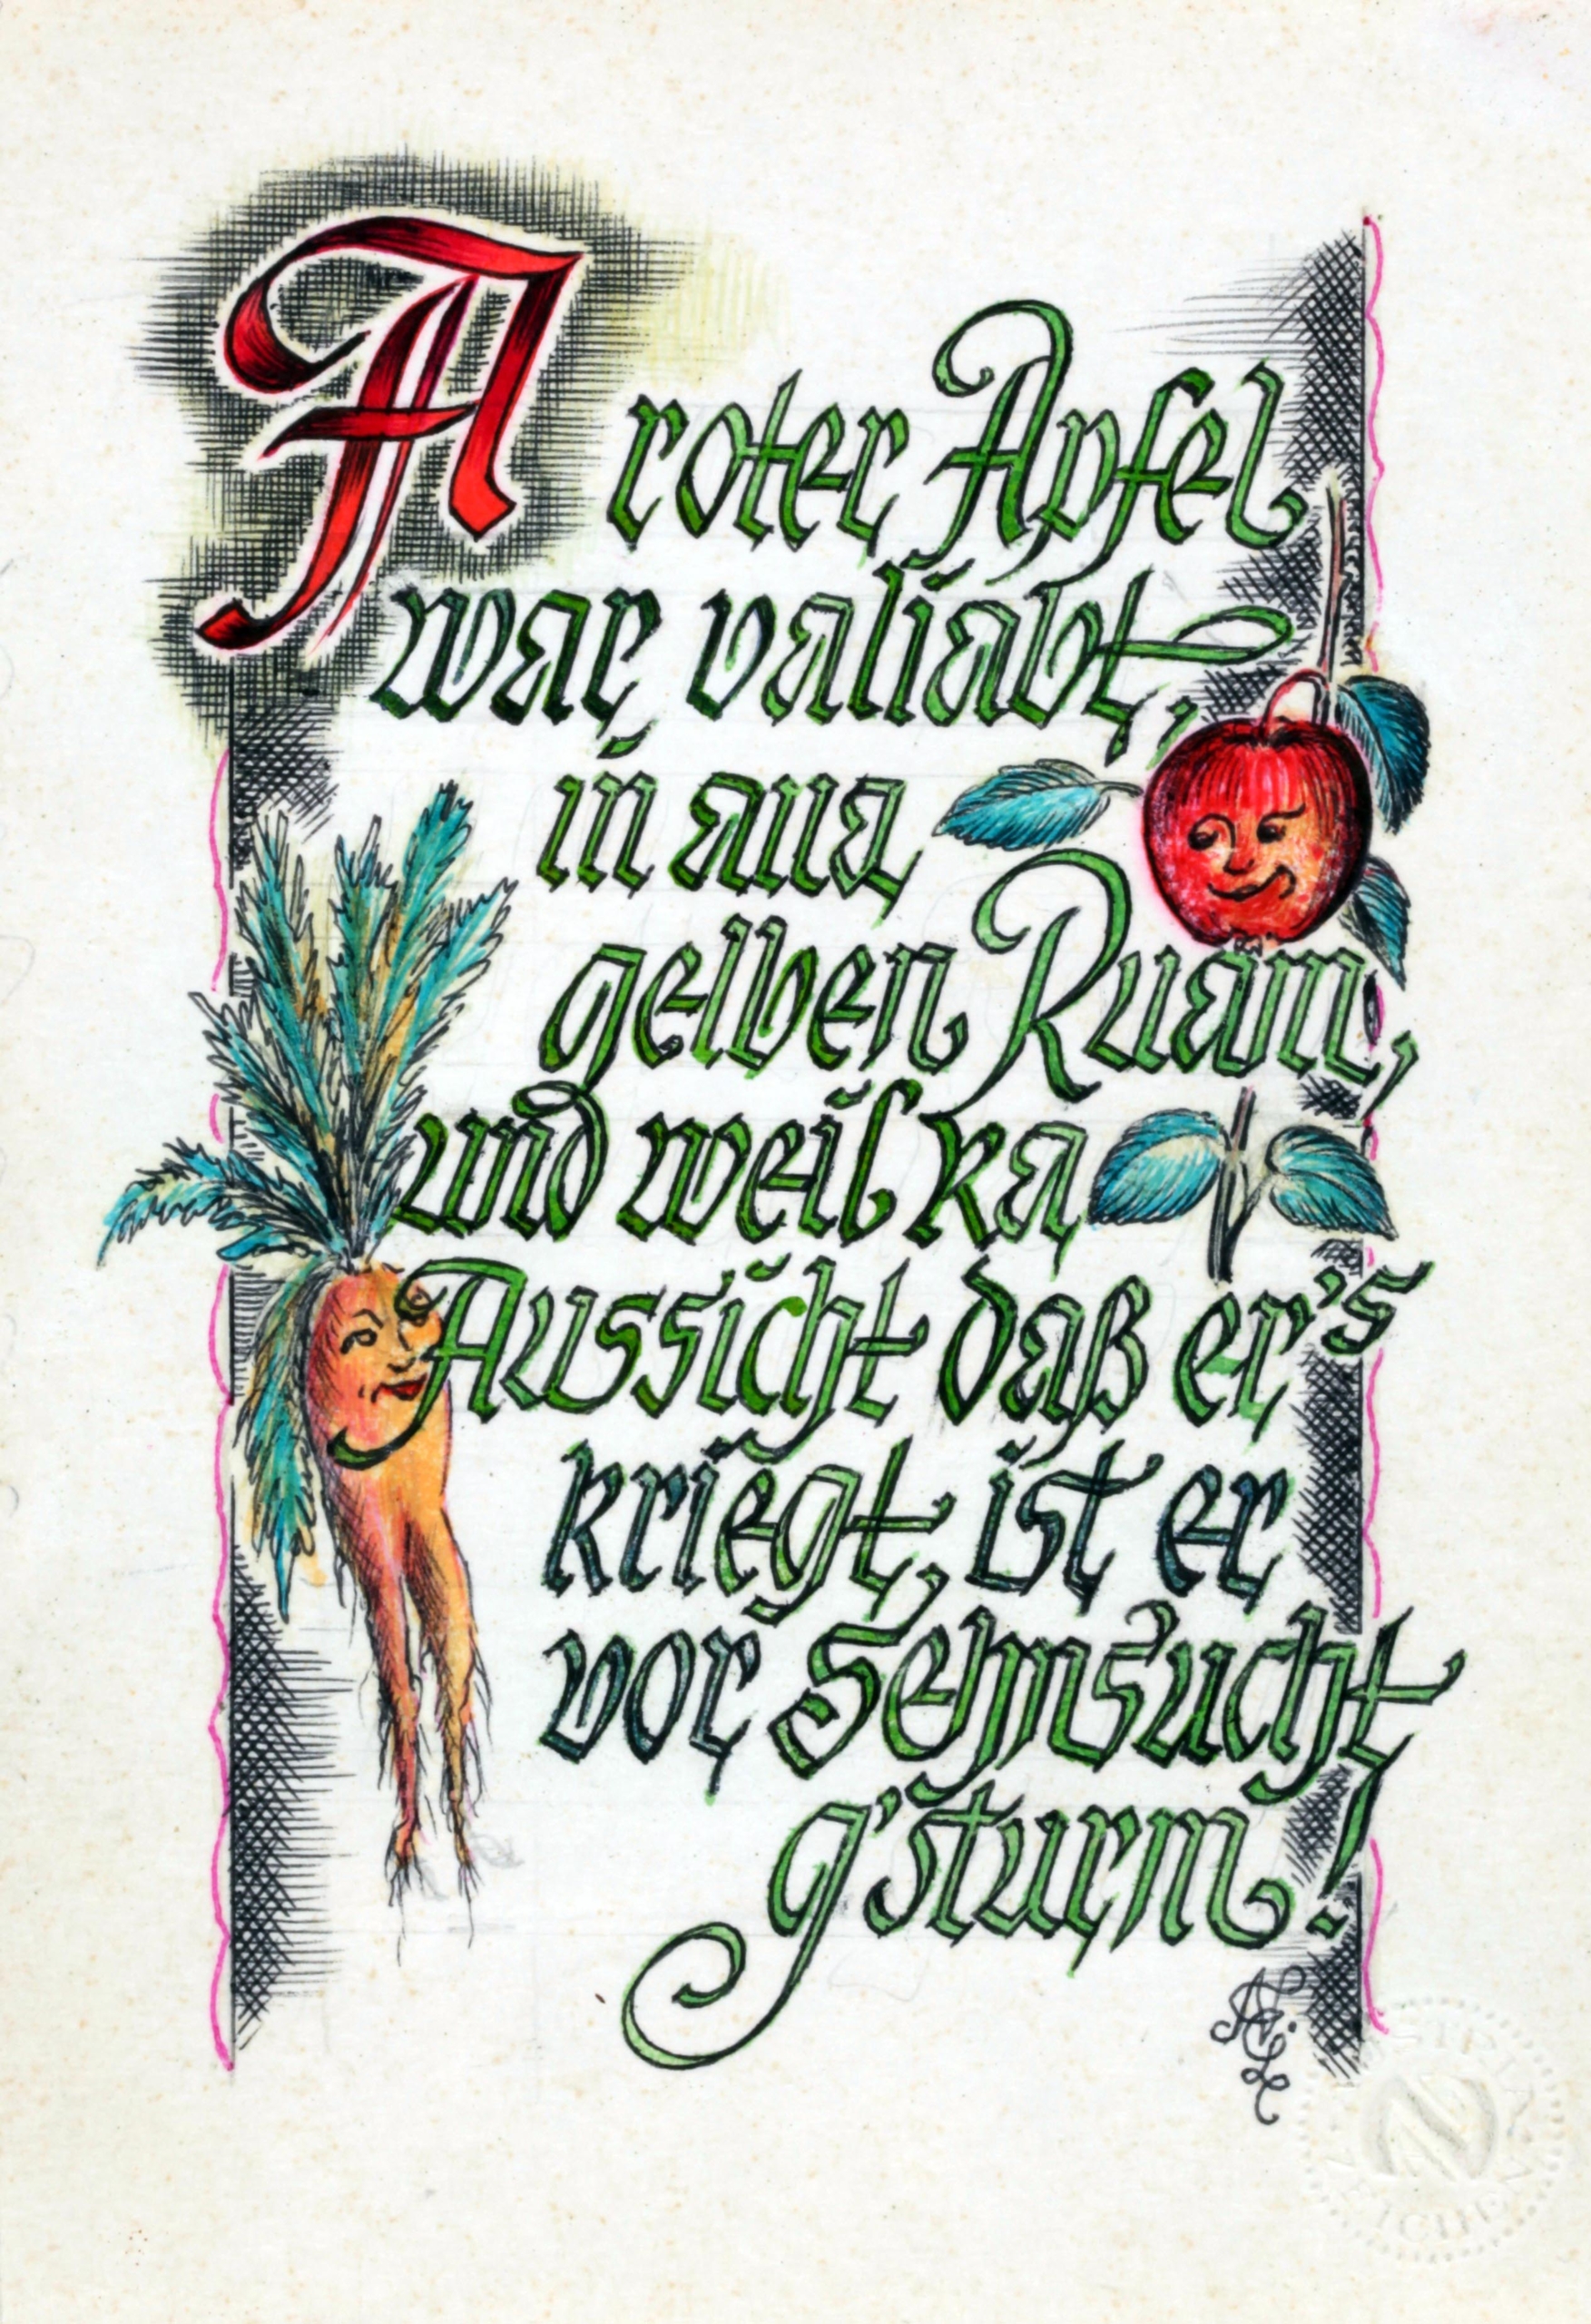 A roter Apfel
war valiabt,
in ana
gelben Ruam,
und weil ka
Aussicht daß er's
kriegt, ist er
vor Sehnsucht
g'sturm!